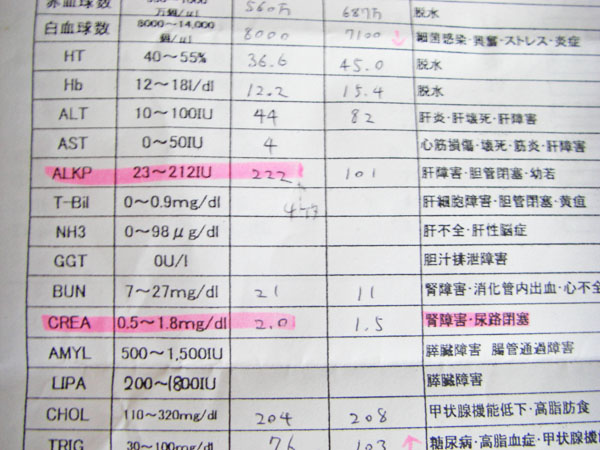 赤血球数 万個/μl 560万 687万 脱水
白血球数 8000～14,000 個/μl 8000 7100 ↓ 細菌感染・興奮・ストレス・炎症
HT 40～55% 36.6 45.0 脱水
Hb 12～18l/dl 12.2 15.4 脱水
ALT 10～100IU 44 82 肝炎・肝壊死・肝障害
AST 0～50IU 4 心筋損傷・壊死・筋炎・肝障害
ALKP 23～212IU 222 101 肝障害・胆管閉塞・幼若
T-Bil 0～0.9mg/dl 肝細胞障害・胆管閉塞・黄疸
NH3 0～98μg/dl 肝不全・肝性脳症
GGT 0U/l 胆汁排泄障害
BUN 7～27mg/dl 21 11 腎障害・消化管内出血・心不全
CREA 0.5～1.8mg/dl 2.0 1.5 腎障害・尿路閉塞
AMYL 500～1,500IU 膵臓障害 腸管通過障害
LIPA 200～1800IU 膵臓障害
CHOL 110～320mg/dl 204 208 甲状腺機能低下・高脂肪食
TRIG 30～100mg/dl 76 103 ↑ 糖尿病・高脂血症・甲状腺機